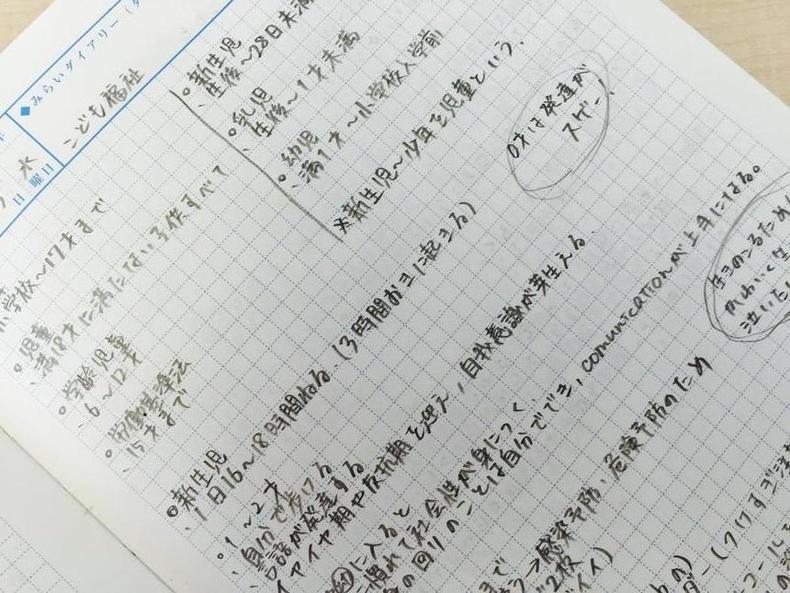 ■みらいダイアリー(
水
日 曜日
こども福祉
小学校〜17才まで
・児童
満18才に満たない子供すべて
・学齢児童
6〜12才
・労働基準法
15才まで
・新生児
生後〜28日未満
・乳児
生後〜1才未満
・幼児
満1才〜小学校入学前
※新生児〜少年を児童という。
0才は発達が
スゲー、
・新生児
1日16〜18時間ねる、(3時間おきに起きる)
・1〜2才
自分で歩ける
言語が発達する
イヤイヤ期や反抗期を迎え,自我意識が芽生える、
に入ると
慣れて社会性が身につく
の回りのことは自分でででき,comunicationが上手になる。
生きのこるため
かわいく生
泣いたり
まで
→感染予防、危険予防のため
2枚